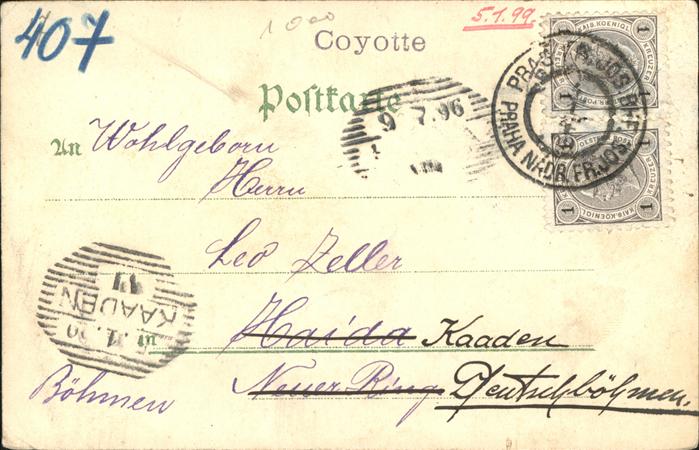 407
1000
5.1.99.
Coyotte
Postkarte
9 7.96
PRAHA NÁDR. FR. JOS.
1 KAIS. KOENIGL. 1
KREUZER
1 1
KREUZER
1 KAIS. KOENIGL. 1
An Wohlgeborn
Herrn
Leo Zeller
KAADEN
Haida Kaaden
Neuer Ring Deutschböhmen.
Böhmen